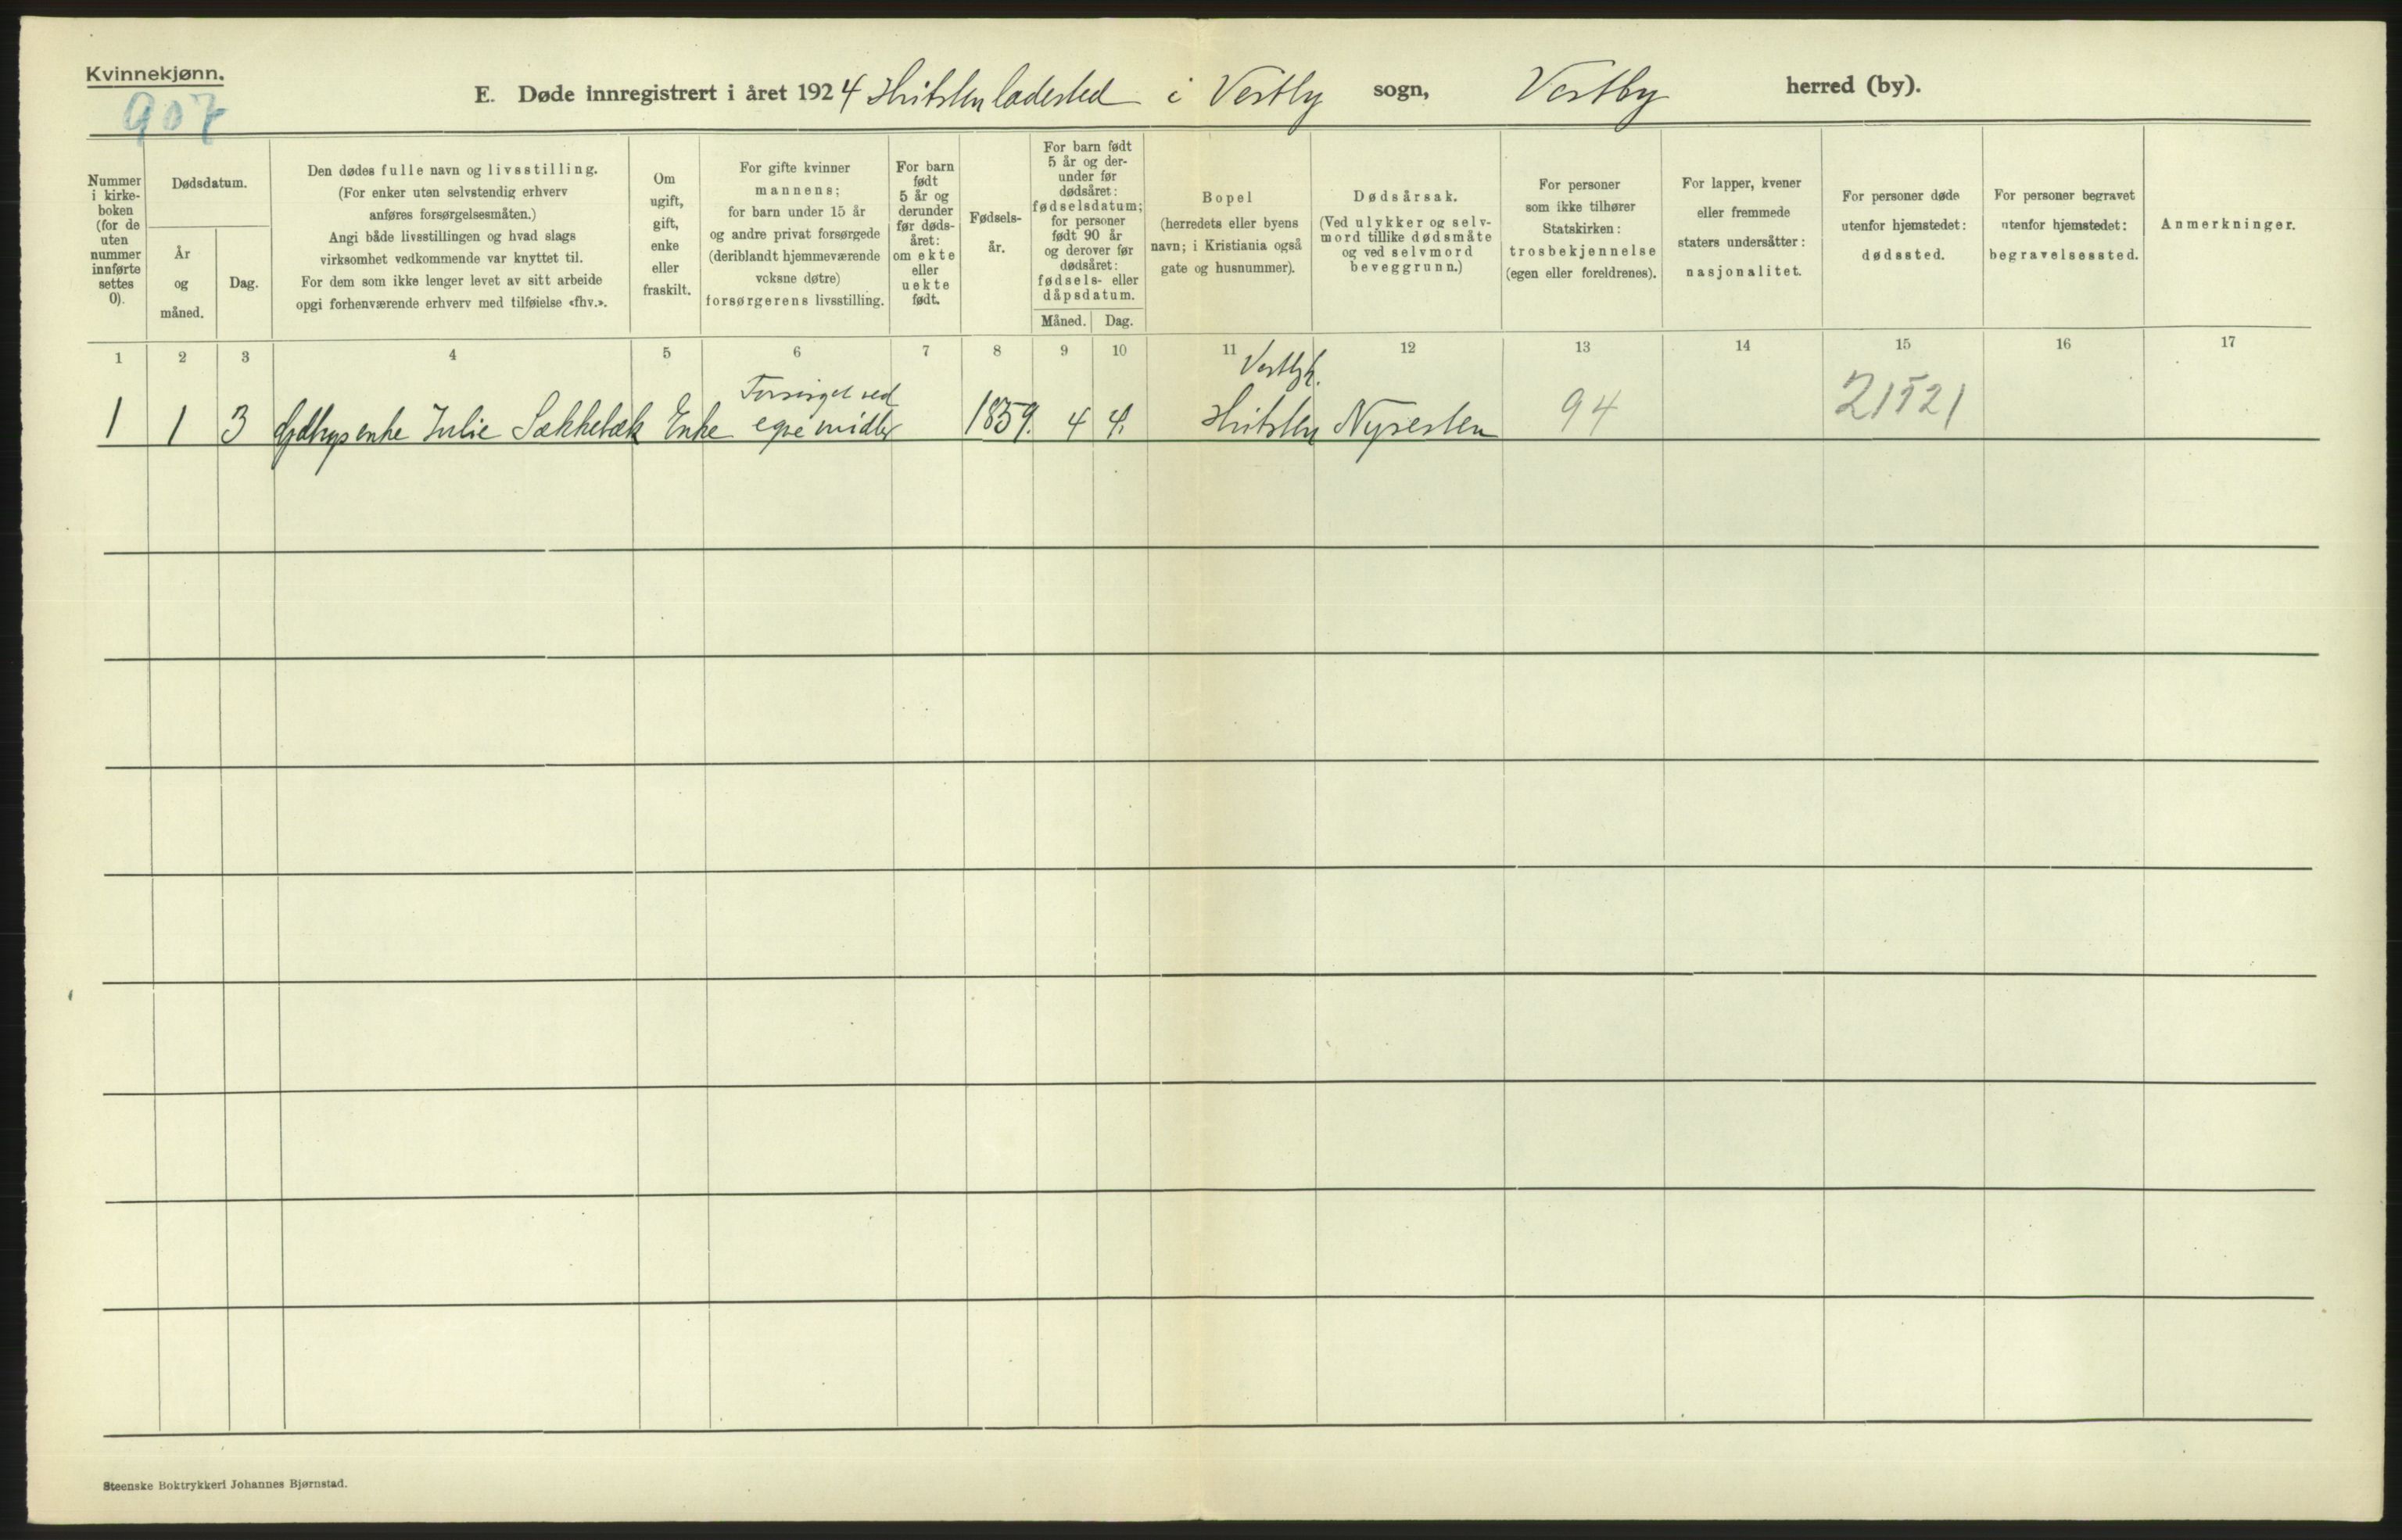 Kvinnekjønn.
907
E. Døde innregistrert i året 1924 Hvitsten ladested i Vestby sogn, Vestby herred (by).
Nummer
i kirke-
boken
(for de
uten
nummer
innførte
settes
0).
Dødsdatum.
År
og
måned.
Dag.
Den dødes fulle navn og livsstilling.
(For enker uten selvstendig erhverv
anføres forsørgelsesmåten.)
Angi både livsstillingen og hvad slags
virksomhet vedkommende var knyttet til.
For dem som ikke lenger levet av sitt arbeide
opgi forhenværende erhverv med tilføielse «fhv.».
Om
ugift,
gift,
enke
eller
fraskilt.
For gifte kvinner
mannens;
for barn under 15 år
og andre privat forsørgede
(deriblandt hjemmeværende
voksne døtre)
forsørgerens livsstilling.
For barn
født
5 år og
derunder
før døds-
året:
om ekte
eller
uekte
født.
Fødsels-
år.
For barn født
5 år og der-
under før
dødsåret:
fødselsdatum;
for personer
født 90 år
og derover før
dødsåret:
fødsels- eller
dåpsdatum.
Måned. Dag.
Bopel
(herredets eller byens
navn; i Kristiania også
gate og husnummer).
Dødsårsak.
(Ved ulykker og selv-
mord tillike dødsmåte
og ved selvmord
beveggrunn.)
For personer
som ikke tilhører
Statskirken:
trosbekjennelse
(egen eller foreldrenes).
For lapper, kvener
eller fremmede
staters undersåtter:
nasjonalitet.
For personer døde
utenfor hjemstedet:
dødssted.
For personer begravet
utenfor hjemstedet:
begravelsessted.
Anmerkninger.
1 2 3 4 5 6 7 8 9 10 11 12 13 14 15 16 17
Forsørget ved Vestby h.
1 1 3 enke Julie Sækkebæk Enke egne midler 1859. 4 4. Hvitsten Nyresten 94 21521
Steenske Boktrykkeri Johannes Bjørnstad.